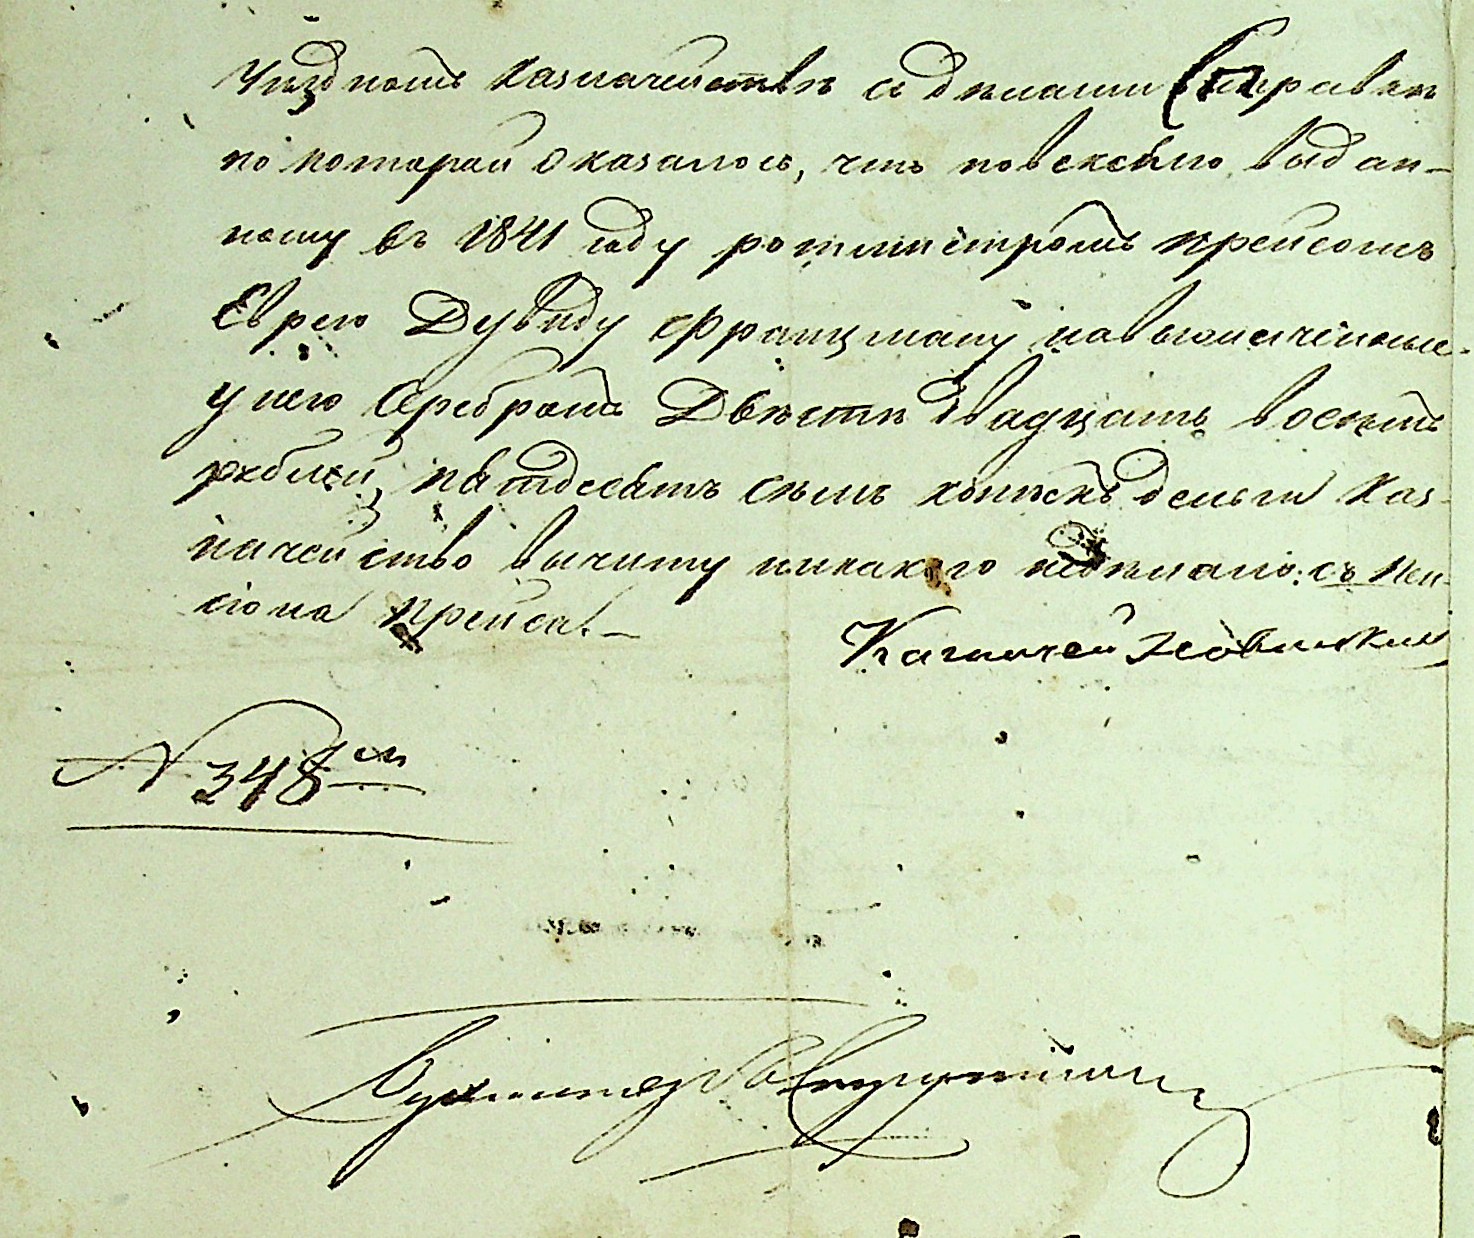 Уѣздномъ Казначействѣ сдѣлать справки
по которой оказалось, что по векселю выдан-
ному въ 1841 году ротмистромъ Прейсомъ
Еврею Дувиду Францману на взятыя
у него Серебромъ Двѣсти двадцать восемь
рублей, пятдесятъ семь копѣекъ деньги Каз-
начейство вычиту никакого недѣлало: съ Пен-
сіона Прейса.—
Казначей
N 348
Бухгалтеръ